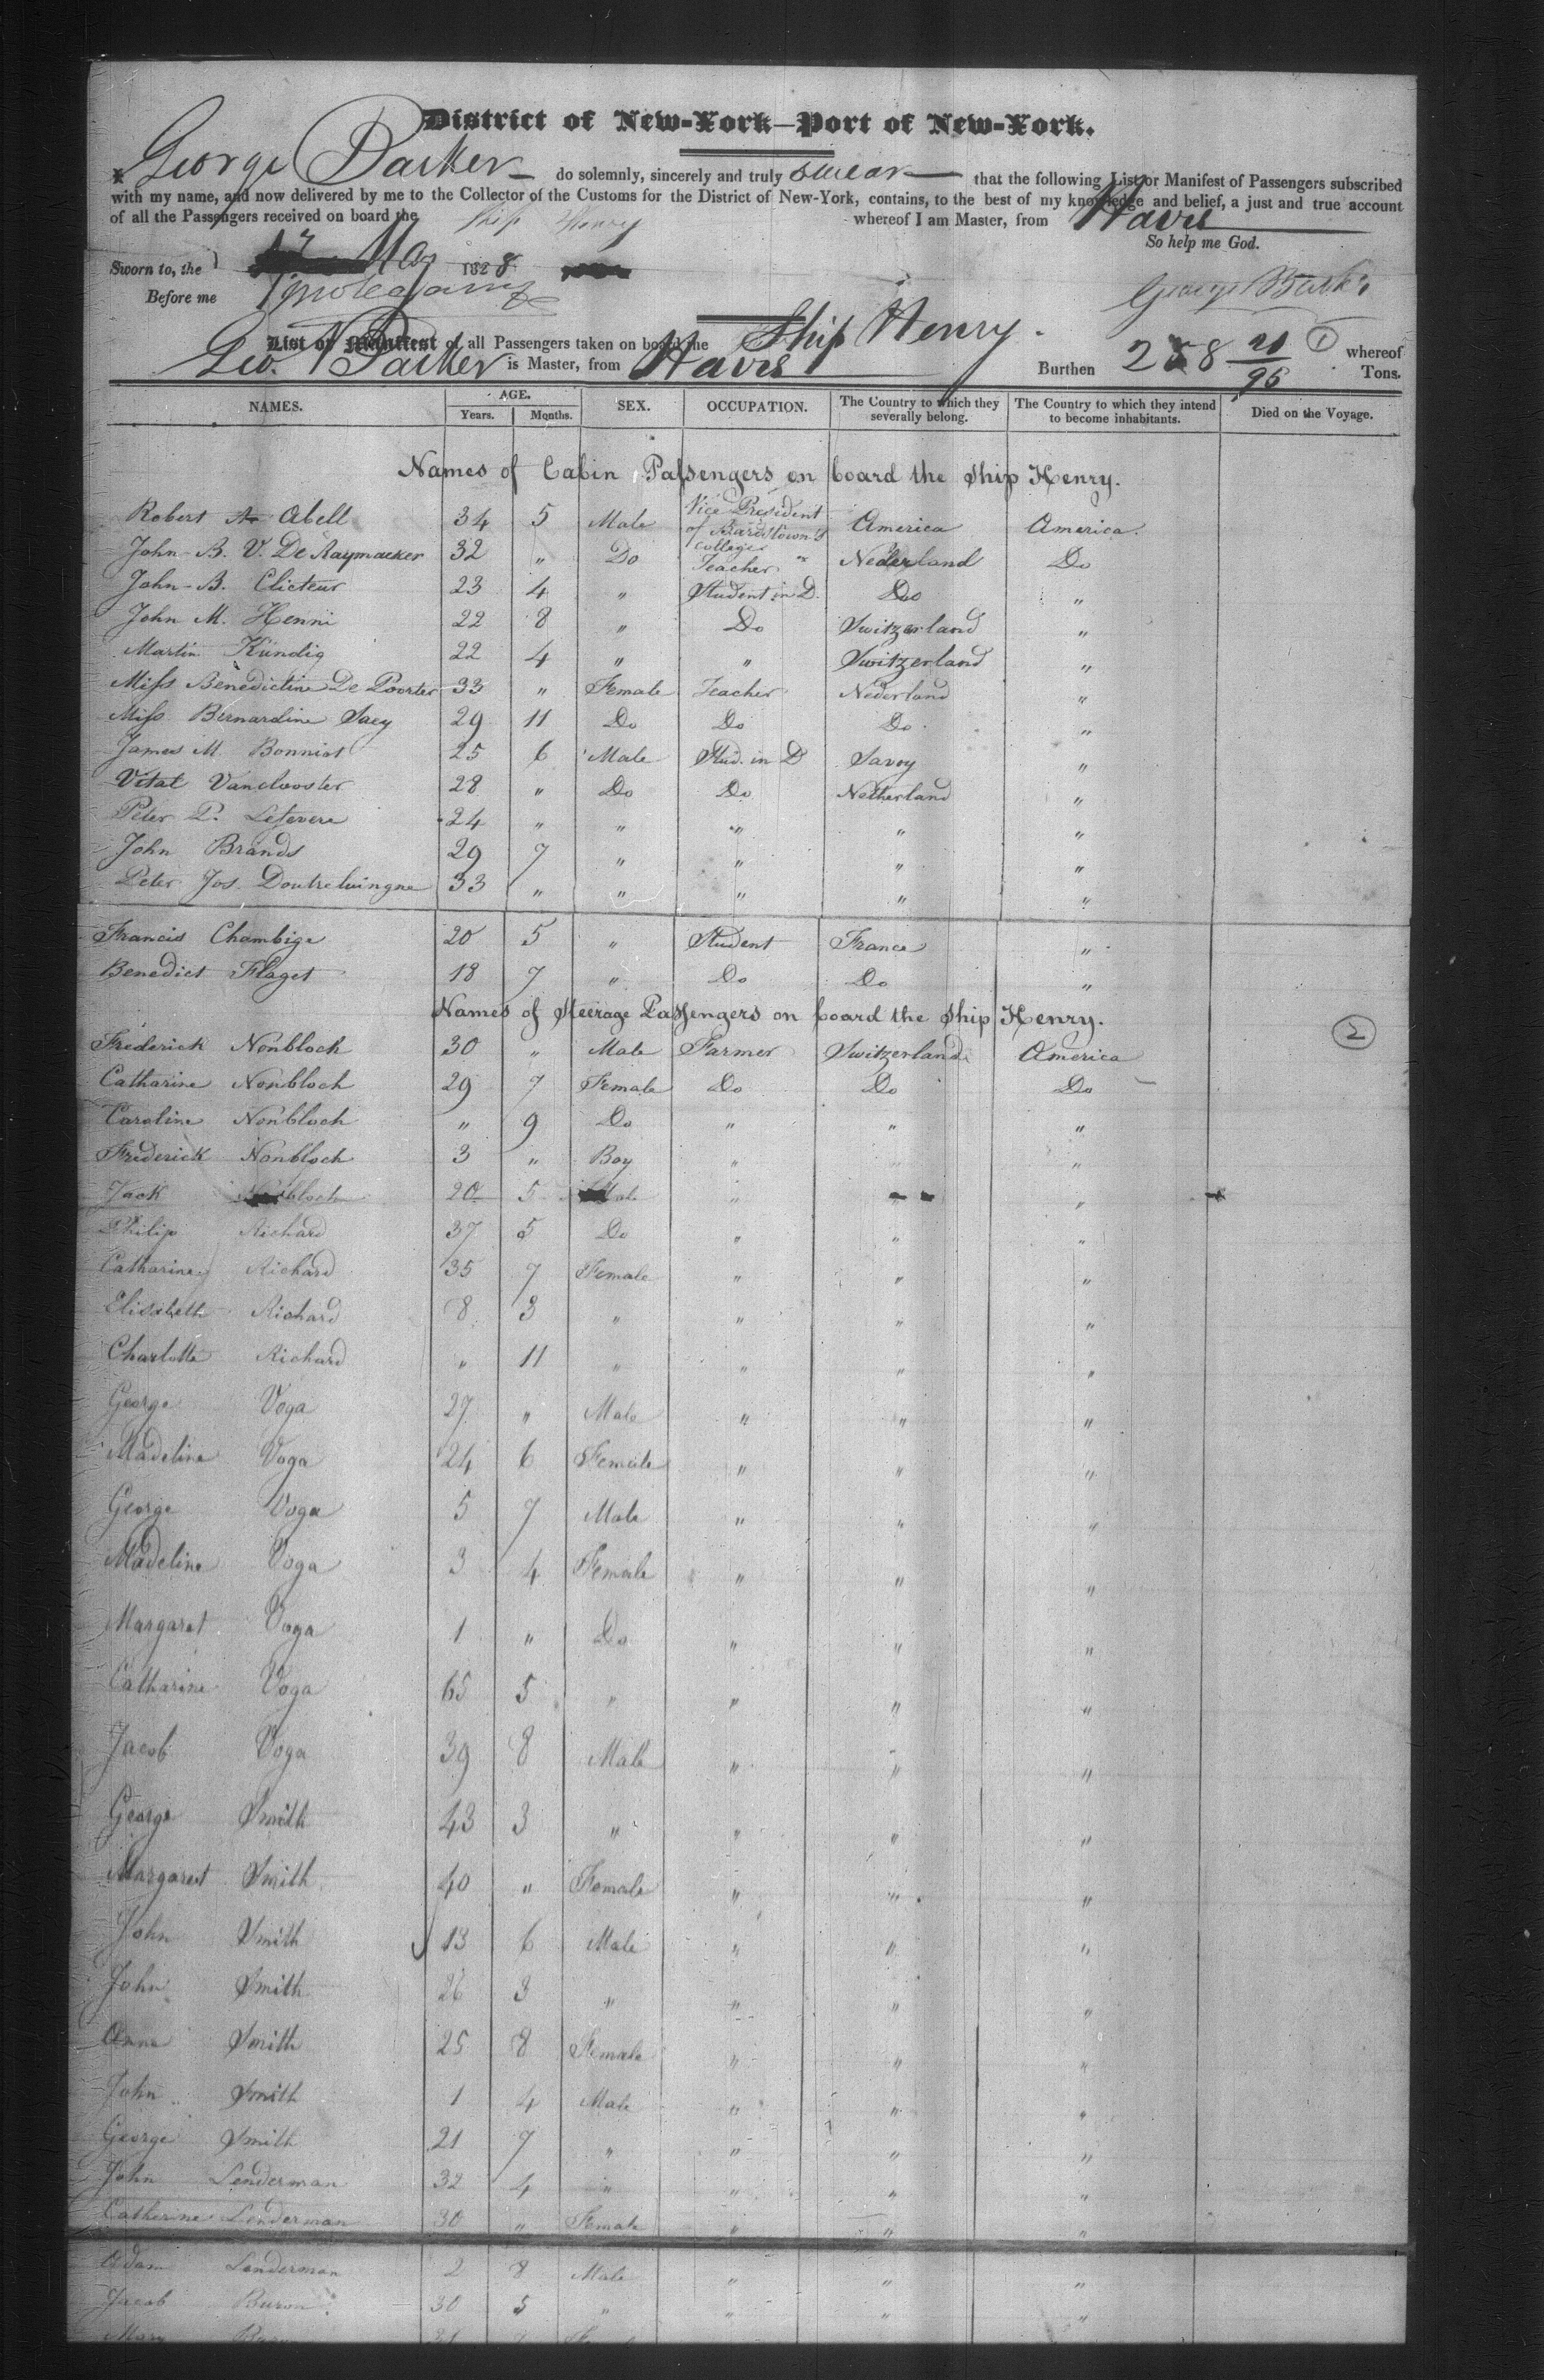 District of New-York—Port of New-York.
George Barker do solemnly, sincerely and truly swear that the following List or Manifest of Passengers subscribed
with my name, and now delivered by me to the Collector of the Customs for the District of New-York, contains, to the best of my knowledge and belief, a just and true account
of all the Passengers received on board the Ship Henry whereof I am Master, from Havre
So help me God.
Sworn to, the 17 May 1828
Before me
George Barker
List or Manifest of all Passengers taken on board the Ship Henry. whereof
Geo. Barker is Master, from Havre Burthen 258 21/95 Tons.
①
NAMES. AGE. SEX. OCCUPATION. The Country to which they severally belong. The Country to which they intend to become inhabitants. Died on the Voyage.
Years. Months.
Names of Cabin Passengers on board the Ship Henry.
Robert A. Abell 34 5 Male Vice President of Bardstown's College America America.
John B. V. De Raymaeker 32 " Do Teacher " Nederland Do
John B. Clicteur 23 4 " Student in D. Do "
John M. Henni 22 8 " Do Switzerland "
Martin Kündig 22 4 " " Switzerland "
Miss Benedictine De Poorter 33 " Female Teacher Nederland "
Miss Bernardine Saey 29 11 Do Do Do "
James M. Bonniot 25 6 Male Stud. in D Savoy "
Vital Vanclooster 28 " Do Do Netherland "
Peter P. Lefevere 24 " " " " "
John Brands 29 7 " " " "
Peter Jos. Doutreluingne 33 " " " " "
Francis Chambige 20 5 " Student France "
Benedict Flaget 18 7 " Do Do "
Names of Steerage Passengers on board the Ship Henry.
②
Frederick Nonbloch 30 " Male Farmer Switzerland America
Catharine Nonbloch 29 7 Female Do Do Do
Caroline Nonbloch " 9 Do " " "
Frederick Nonbloch 3 " Boy " " "
Jack Nonbloch 20 5 Male " " "
Philip Richard 37 5 Do " " "
Catharine Richard 35 7 Female " " "
Elisabeth Richard 8 3 " " " "
Charlotte Richard " 11 " " " "
George Voga 27 " Male " " "
Madeline Voga 24 6 Female " " "
George Voga 5 7 Male " " "
Madeline Voga 3 4 Female " " "
Margaret Voga 1 " Do " " "
Catharine Voga 65 5 " " " "
Jacob Voga 39 8 Male " " "
George Smith 43 3 " " " "
Margaret Smith 40 " Female " " "
John Smith 13 6 Male " " "
John Smith 26 3 " " " "
Anna Smith 25 8 Female " " "
John Smith 1 4 Male " " "
George Smith 21 7 " " " "
John Lenderman 32 4 " " " "
Catherine Lenderman 30 " Female " " "
Adam Lenderman 2 8 Male " " "
Jacob Buron 30 5 " " " "
Mary